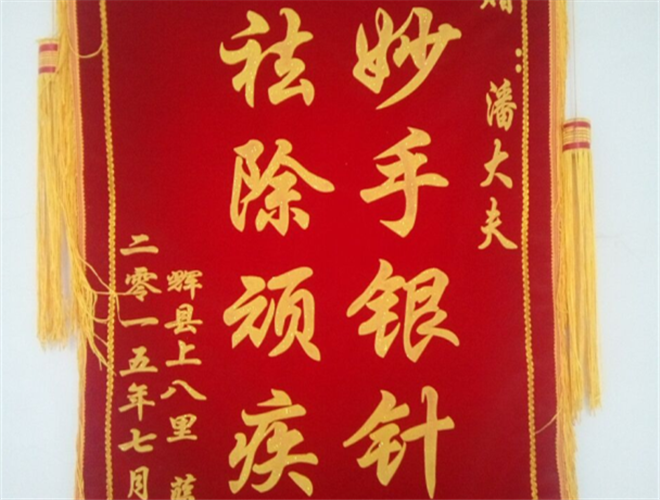 赠：潘大夫
妙手银针
祛除顽疾
辉县上八里
二零一五年七月